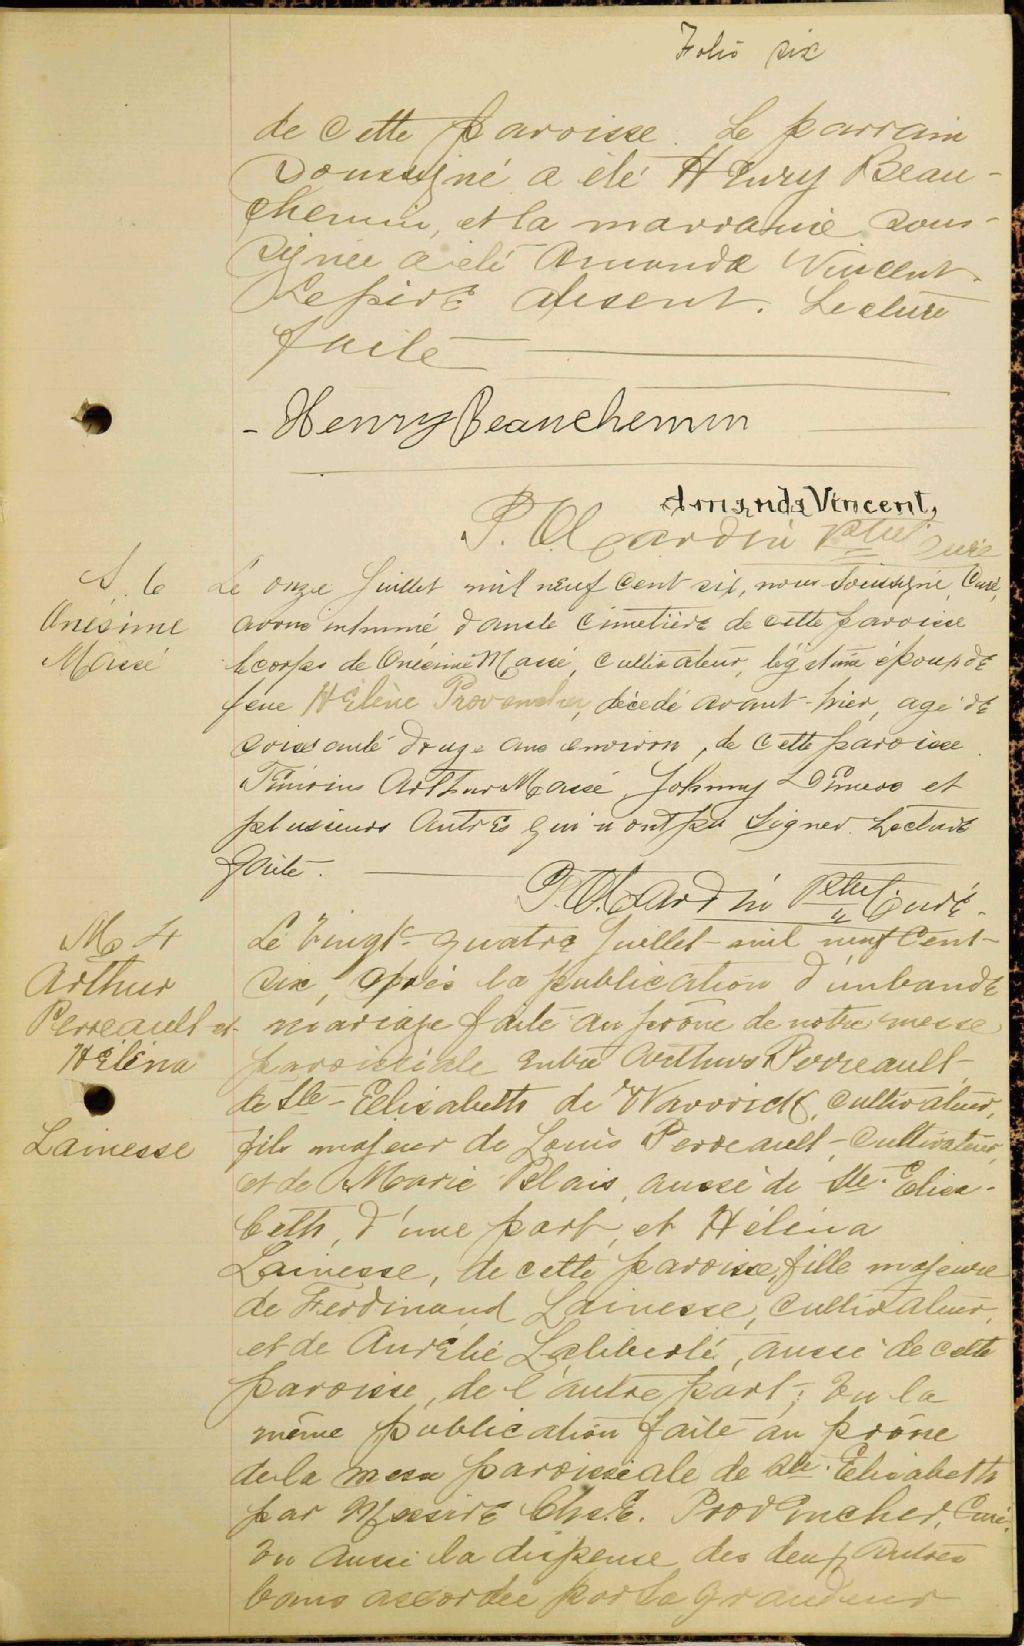 Folio six
de cette paroisse. Le parrain
soussigné a été Henry Beau-
chemin, et la marraine sous-
signée a été Amanda Vincent.
Le père absent. Lecture
faite
- Henry Beauchemin
Amanda Vincent,
P. O. Jardin Ptre Curé
S. 6
Onésime
Massé
Le onze Juillet mil neuf cent six, nous soussigné, Curé,
avons inhumé dans le cimetière de cette paroisse
le corps de Onésime Massé, cultivateur, légitime époux de
feue Hélène Provencher, décédé avant-hier, agé de
soixante douze ans environ, de cette paroisse.
Témoins Arthur Massé, Johnny et
plusieurs autres qui n'ont pu signer. Lecture
faite.
P. O. Jardin Ptre Curé.
M 4
Arthur
Perreault et
Héléna
Lainesse
Le vingt-quatre Juillet mil neuf cent-
six, après la publication d'un ban de
mariage faite au prône de notre messe
paroissiale entre Arthur Perreault
de Ste-Elisabeth de Warwick, cultivateur,
fils majeur de Louis Perreault, cultivateur,
et de Marie Blais, aussi de Ste. Elisa-
beth, d'une part, et Héléna
Lainesse, de cette paroisse, fille majeure
de Ferdinand Lainesse, cultivateur,
et de Aurélie Laliberté, aussi de cette
paroisse, de l'autre part; vu la
même publication faite au prône
de la messe paroissiale de Ste. Elisabeth
par Messire Chs. E. Provencher, Curé.
Vu aussi la dispense des deux autres
bans accordée par Sa Grandeur